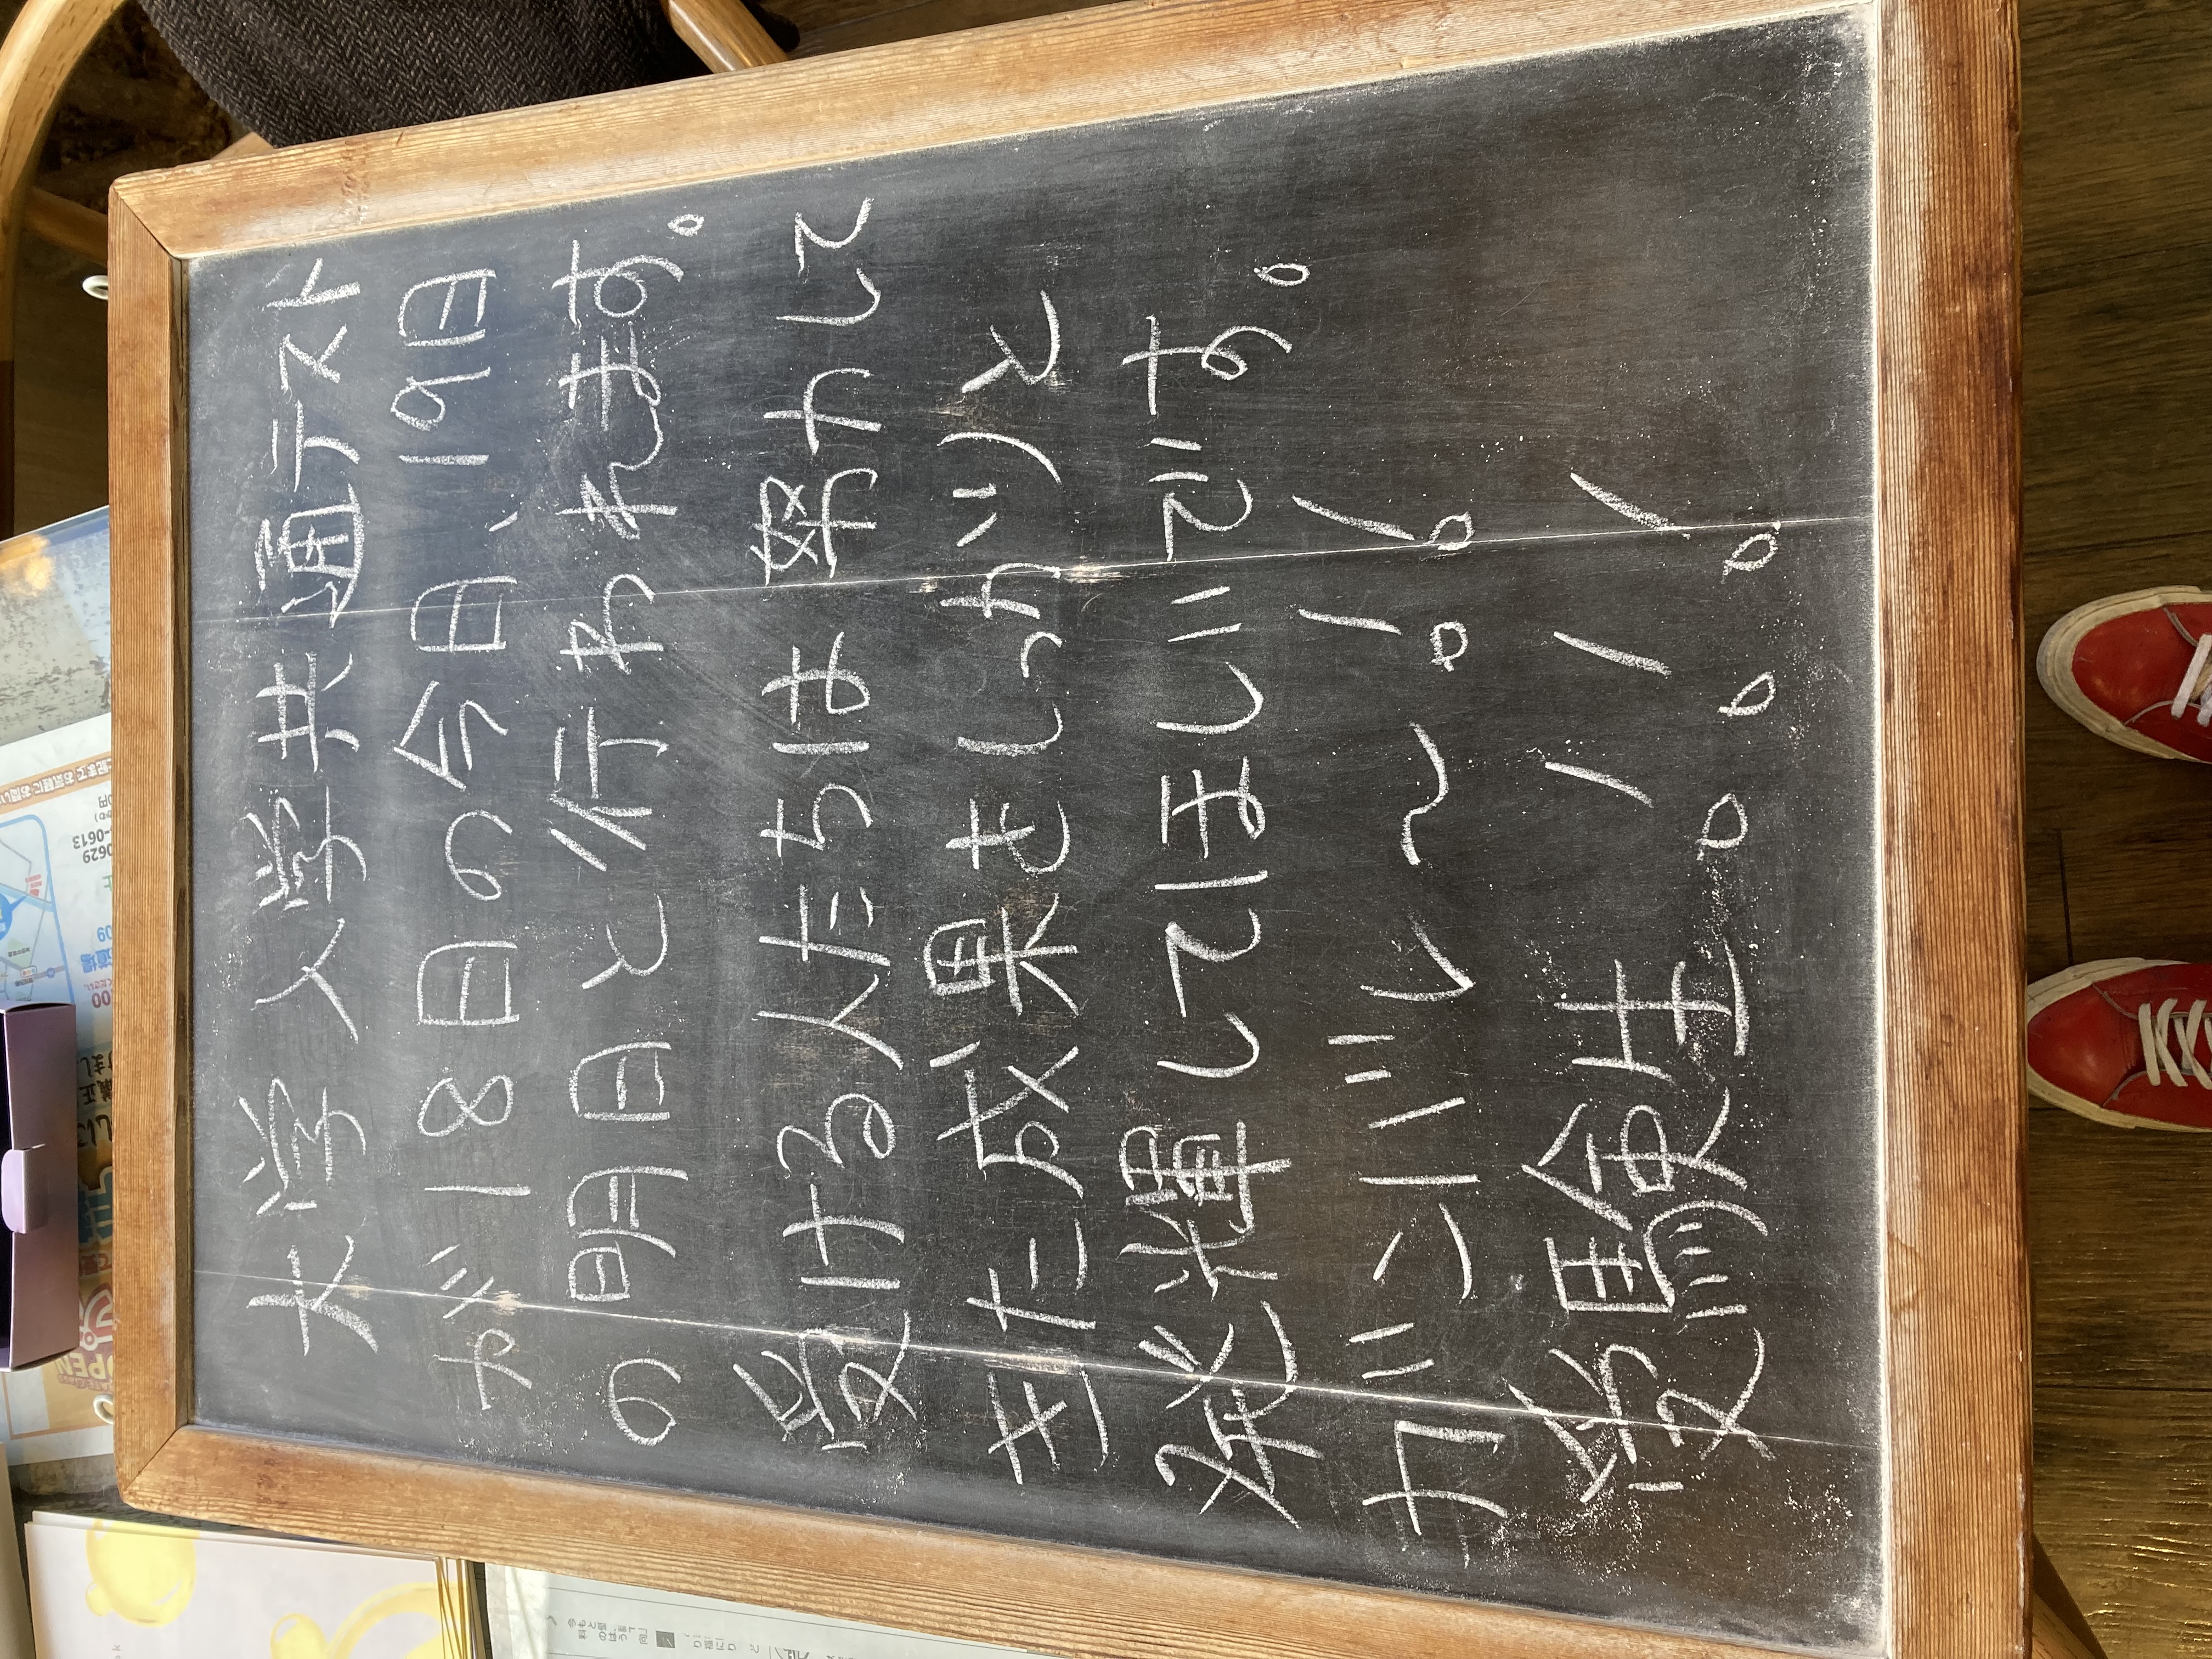 大学入学共通テスト
が18日の今日、19日
の明日と行われます。
受ける人たちは努力して
きた成果をしっかりと
発揮してほしいです。
ガンバレ〜!!
受験生!!!